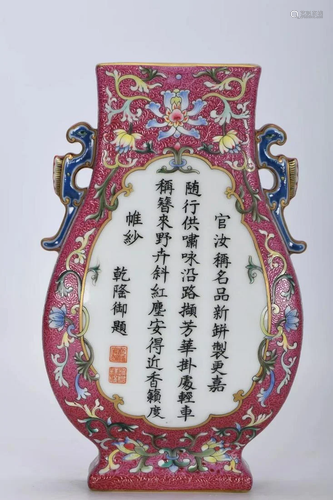 官汝稱名品新缾製更嘉
随行供嘯咏沿路擷芳華掛處輕車
稱簪來野卉斜紅塵安得近香籟度
帷紗
乾隆御題